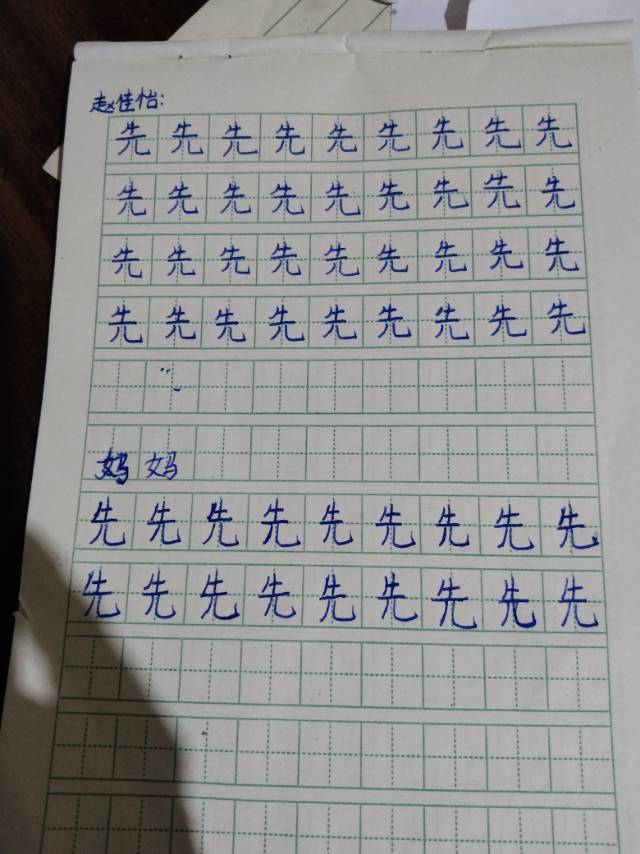 赵佳怡：
先先先先先先先先先
先先先先先先先先先
先先先先先先先先先
先先先先先先先先先
妈妈
先先先先先先先先先
先先先先先先先先先